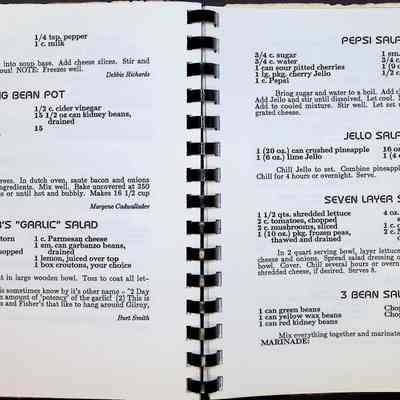 1/4 tsp. pepper
1 c. milk
into soup base. Add cheese slices. Stir and
ous! NOTE: Freezes well.
Debbie Richards
NG BEAN POT
1/2 c. cider vinegar
15 1/2 oz can kidney beans,
drained
15
rees. In dutch oven, saute bacon and onions
ngredients. Mix well. Bake uncovered at 250
s or until hot and bubbly. Makes 16 1/2 cup
Margene Cadwallader
B'S "GARLIC" SALAD
torn
1 c. Parmesan cheese
1 sm. can garbanzo beans,
drained
hopped
1 lemon, juiced over top
1 box croutons, your choice
t in large wooden bowl. Toss to coat all let-
is sometimes know by it's other name - "2 Day
n amount of 'potency' of the garlic! (2) This is
s and Fisher's that like to hang around Gilroy,
Burt Smith
PEPSI SALA
3/4 c. sugar
3/4 c. water
1 can sour pitted cherries
1 lg. pkg. cherry Jello
1 c. Pepsi
1 sm. (9
1 c.
1/2 c.
Bring sugar and water to a boil. Add c
Add Jello and stir until dissolved. Let cool.
Add to cooled mixture. Stir well. Let set un
grated cheese.
JELLO SALA
1 (20 oz.) can crushed pineapple
1 (6 oz.) lime Jello
16 o
1 (4
Chill Jello to set. Combine pineapple
Chill for 4 hours or overnight. Serve.
SEVEN LAYER S
1 1/2 qts. shredded lettuce
2 c. tomatoes, chopped
2 c. mushrooms, sliced
1 (10 oz.) pkg. frozen peas,
thawed and drained
4 oz.
1 c.
2 c.
In 2 quart serving bowl, layer lettuce
cheese and onions. Spread salad dressing o
bowl. Cover. Chill several hours or overn
shredded cheese, if desired. Serves 8.
3 BEAN SAL
1 can green beans
1 can yellow wax beans
1 can red kidney beans
Chop
Chop
Mix everything together and marinate
MARINADE: